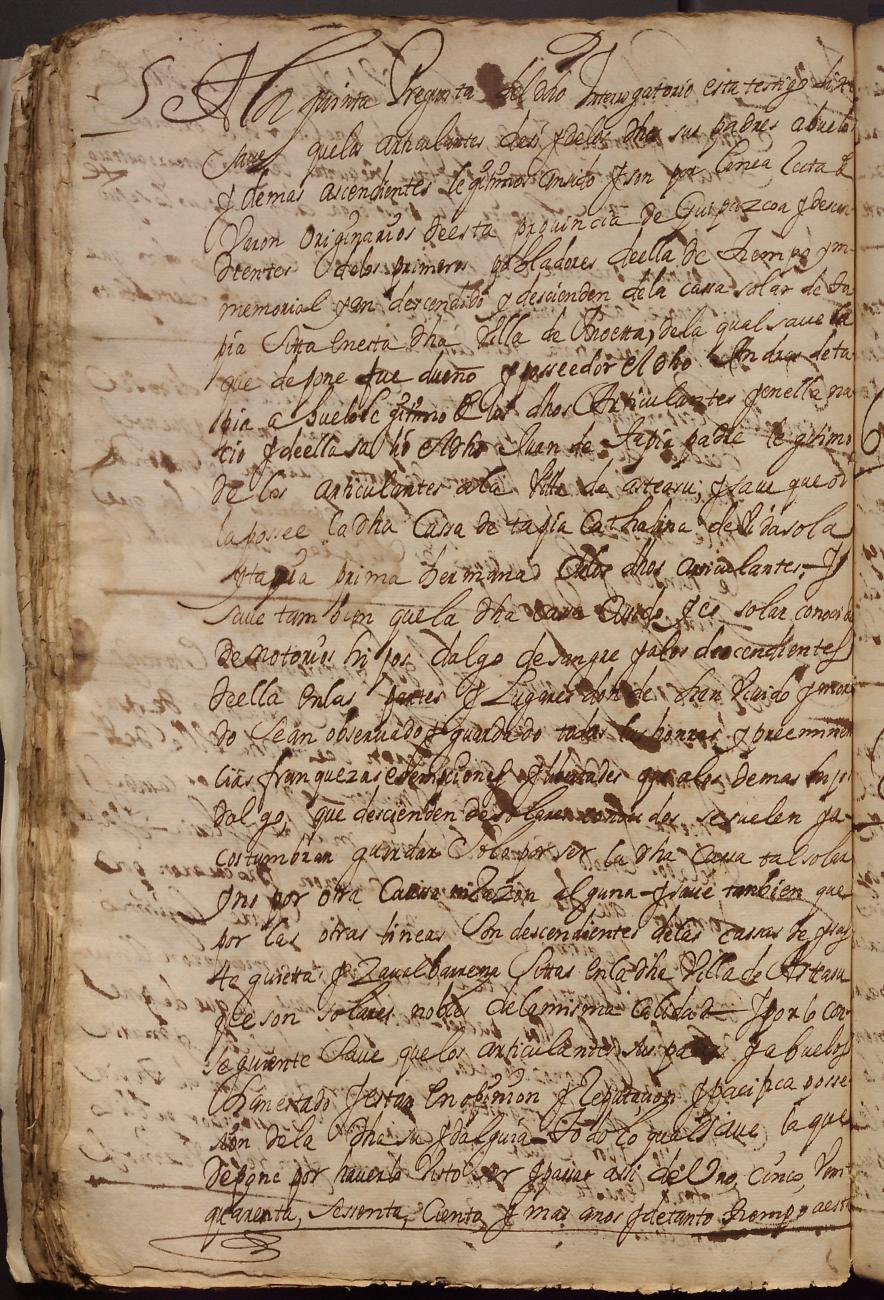 5 A la quinta Pregunta del dho Interrogatorio esta testigo dixo
save que los articulantes y de los dhos sus padres abuelos
y demas ascendientes legitimos an sido y son por linea recta de
Varon originarios de esta provincia de Guipazcoa y descen
dientes de los primeros pobladores de ella de tiempo ym
memorial y an descendido y descienden de la cassa solar de ta
pia Sitta en esta dha Villa de de la qual save la
que depone fue dueño y posseedor el dho Andres de ta
pia abuelo legitimo de los dhos Articulantes y en ella na
cio y de ella salio el dho Juan de Tapia padre legitimo
de los articulantes a la Villa de asteasu, y save que oi
la possee la dha Cassa de tapia Cathalina de Vidasola
y tapia prima hermana de los dhos articulantes, y
save tambien que la dha cassa a sido y es solar conocido
de notorios hijos dalgo de sangre y a los descendientes
de ella en las partes y Lugares donde han vivido y mora
do se an observado y guardado todas las honras y preeminen
cias franquezas esempciones y libertades que a los demas hijos
dalgo, que descienden de solares conocidos se suelen y a
costumbran guardar Solo por ser la dha Cassa tal solar
y no por otra Caussa ni Razon alguna y save tambien que
por las otras lineas Son descendientes de las cassas de ysas
te quieta y Zavalbarrena Sittas en la dha Villa de Asteasu
que son solares nobles de la misma calidad y por lo con
seguiente save que los articulantes sus padres y abuelos
han estado y estan en opinion y Reputacion y pacifica posse
sion de la dha su ydalguia todo lo qual save la que
depone por haverlo Visto ser y passar assi de Uno, cinco, Veinte
quarenta, sessenta, Ciento y mas años y de tanto tiempo a esta